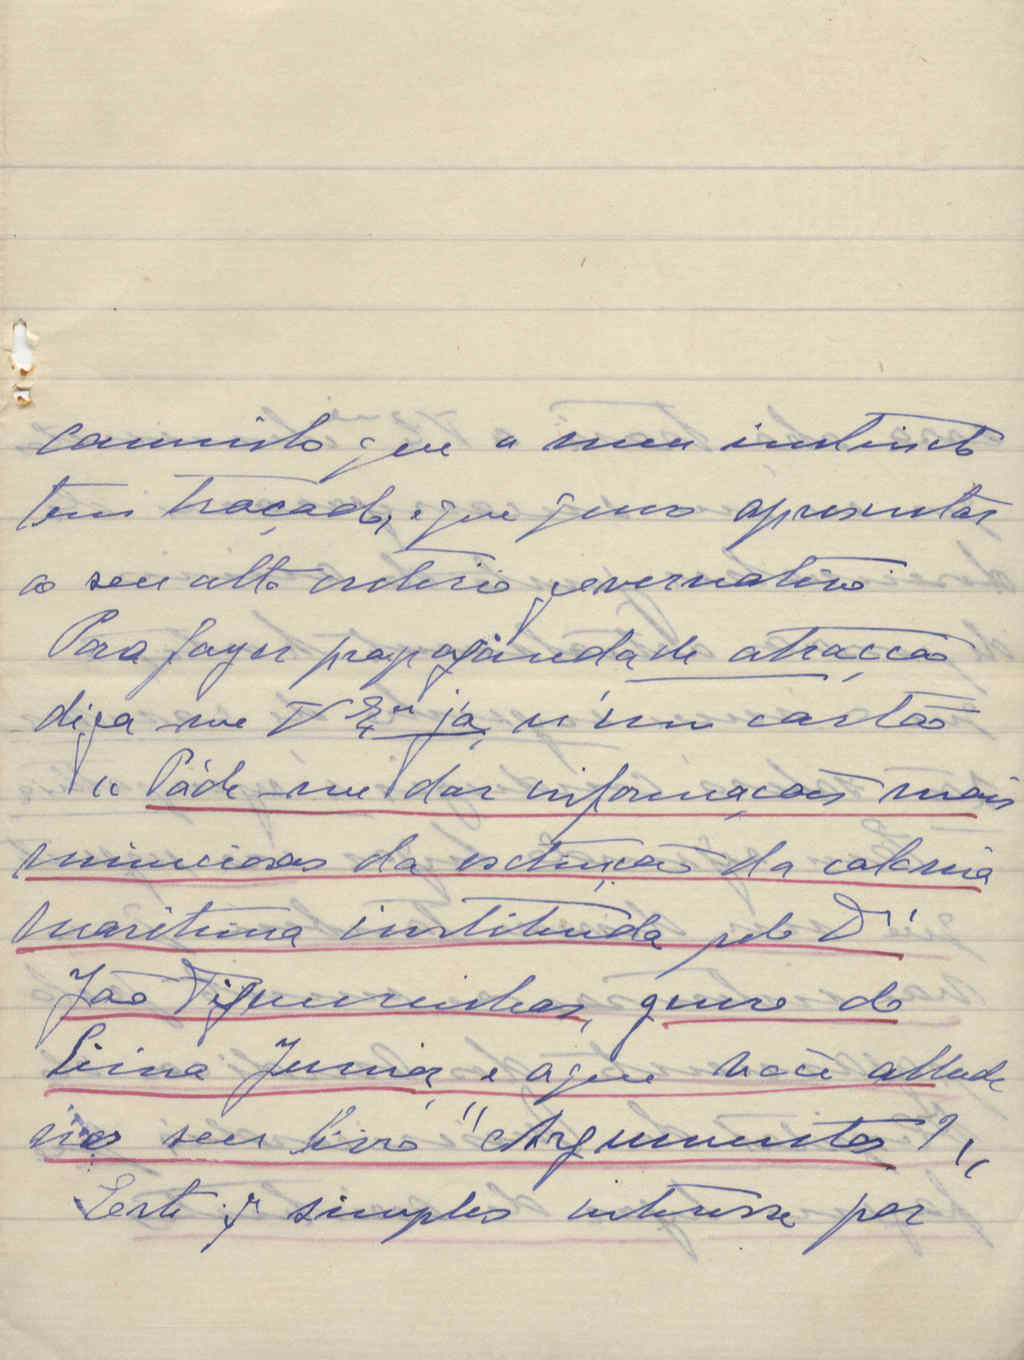 caminho que o meu instincto
tem traçado, e que quero apresentar
ao seu alto criterio governativo
Para fazer propaganda de atracção
diga-me V Exª já, n'um cartão
"Póde-me dar informações mais
minuciosas da extincção da colonia
maritima instituida pelo Dr
João Figueirinhas, genro do
Lima Junior, e a que você allude
no seu livro "Argumentos?"
Este simples interesse por